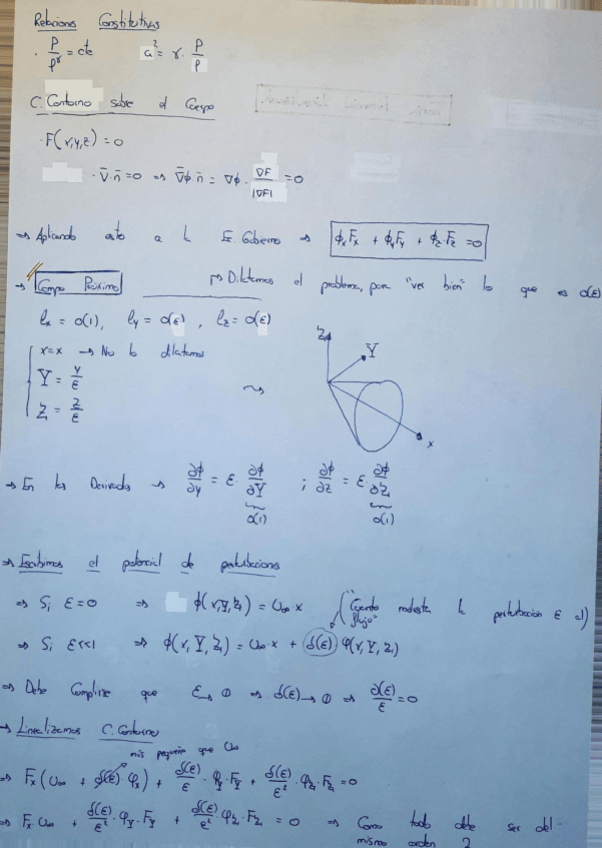 Relaciones Constitutivas
· P/ρ^γ = cte   a² = γ · P/ρ
C. Contorno sobre el Cuerpo
· F(x,y,z) = 0
· V̄·n̄ = 0 ⇒ ∇̄ϕ·n̄ = ∇ϕ · ∇F/|∇F| = 0
⇒ Aplicando esto a la Ec. Gobierno ⇒ ϕx Fx + ϕy Fy + ϕz·Fz = 0
→ Campo Próximo ↱ Dilatamos el problema, para "ver bien" lo que es O(ε)
lx = O(1), ly = O(ε), lz = O(ε)
x = x → No lo dilatamos
Y = y/ε
Z = z/ε
Z Y x
→ En las Derivadas → ∂ϕ/∂y = ε · ∂ϕ/∂Y ; ∂ϕ/∂z = ε · ∂ϕ/∂Z
O(1) O(1)
⇒ Escribimos el potencial de perturbaciones
⇒ Si ε=0 ⇒ ϕ(x,Y,Z) = U∞ x ("Cuanto molesta la perturbación ε al
flujo"
⇒ Si ε<<1 ⇒ ϕ(x,Y,Z) = U∞·x + δ(ε) φ(x,Y,Z)
⇒ Debe Cumplirse que ε→0 ⇒ δ(ε)→0 ⇒ δ(ε)/ε = 0
→ Linealizamos C. Contorno
más pequeño que U∞
⇒ Fx(U∞ + δ(ε)·φx) + δ(ε)/ε · φY·FY + δ(ε)/ε² · φZ·FZ = 0
⇒ Fx U∞ + δ(ε)/ε² · φY·FY + δ(ε)/ε² · φZ·FZ = 0 ⇒ Como todo debe ser del
mismo orden 2